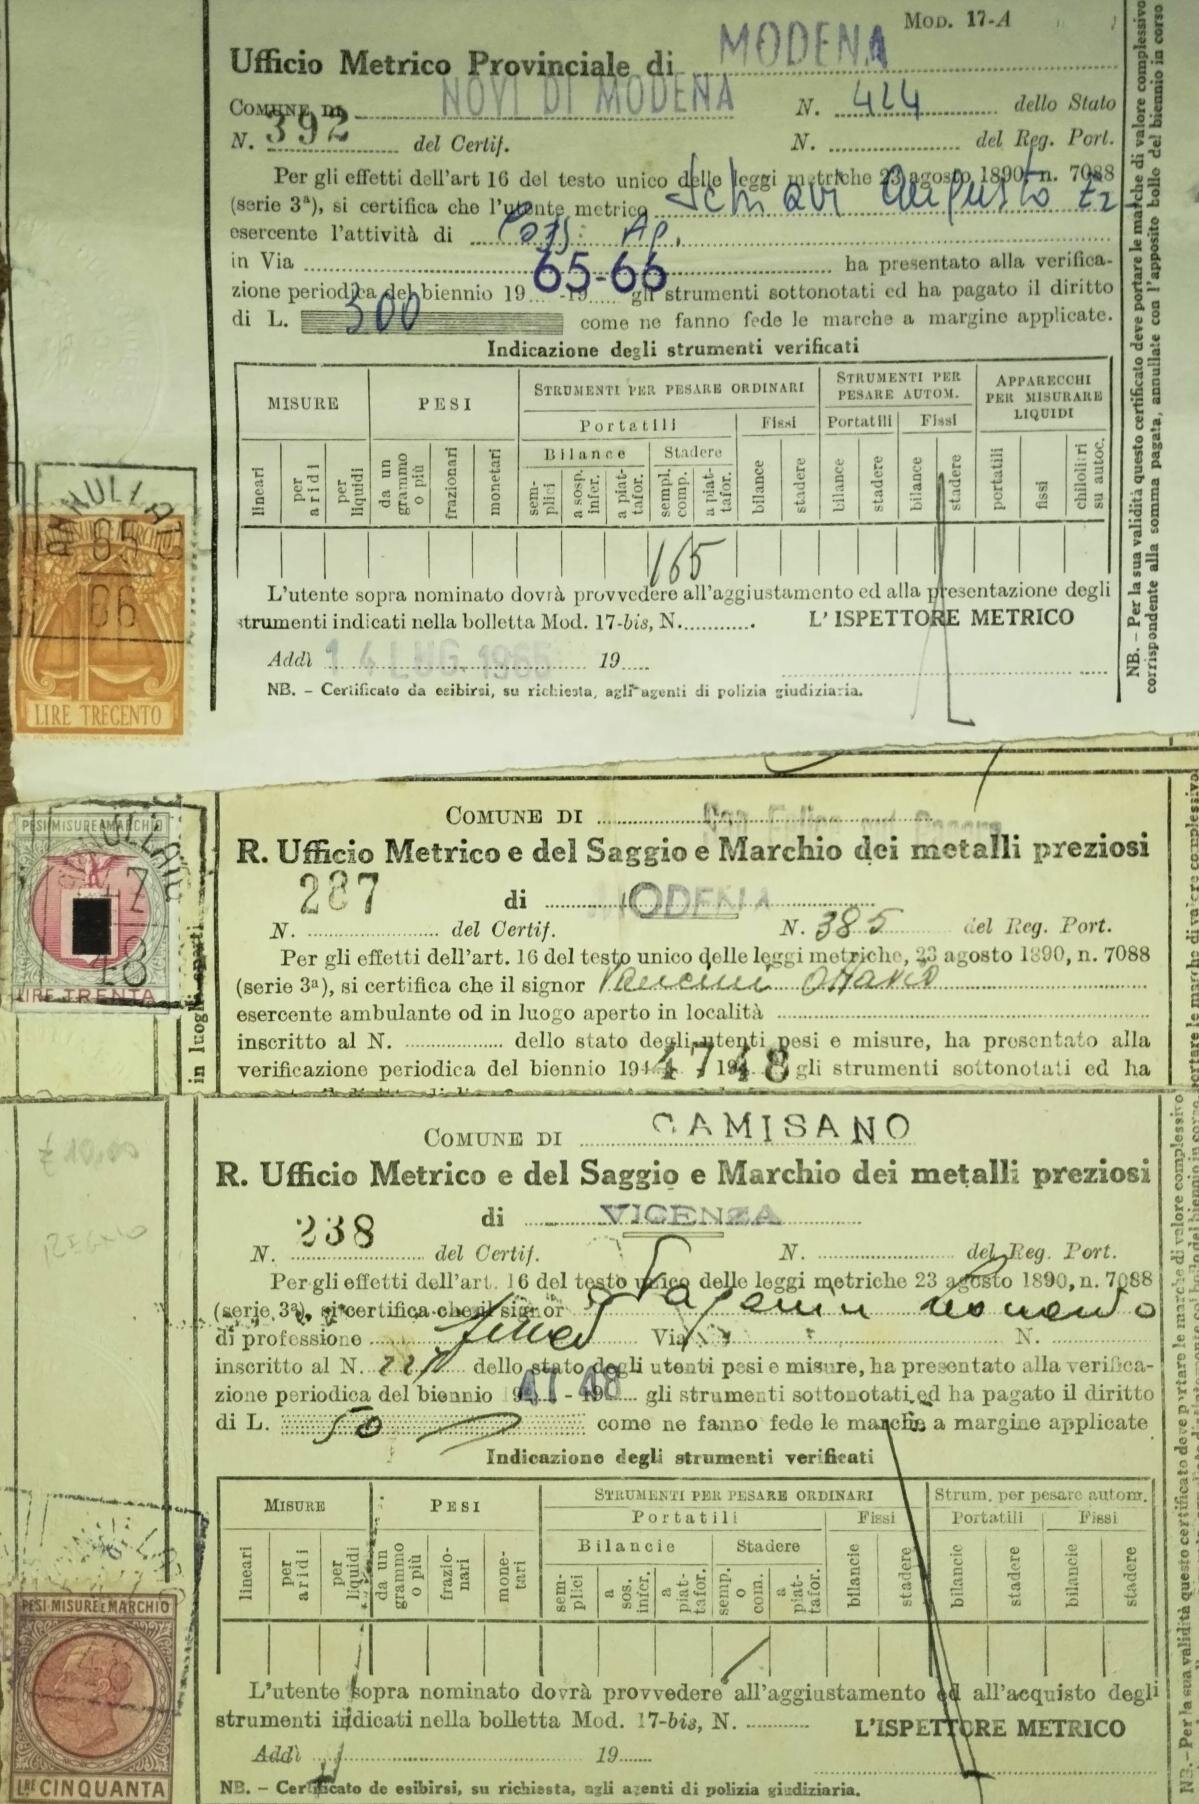 MOD. 17-A
Ufficio Metrico Provinciale di MODENA
COMUNE DI NOVI DI MODENA N. 424 dello Stato
N. 392 del Certif. N. del Reg. Port.
Per gli effetti dell'art 16 del testo unico delle leggi metriche 23 agosto 1890 n. 7088
(serie 3ª), si certifica che l'utente metrico Schiavi Augusto
esercente l'attività di
in Via ha presentato alla verifica-
zione periodica del biennio 19 65-66 -19 gli strumenti sottonotati ed ha pagato il diritto
di L. 300 come ne fanno fede le marche a margine applicate.
Indicazione degli strumenti verificati
MISURE PESI STRUMENTI PER PESARE ORDINARI STRUMENTI PER PESARE AUTOM. APPARECCHI PER MISURARE LIQUIDI
Portatili Fissi Portatili Fissi
Bilance Stadere
lineari per aridi per liquidi da un grammo o più frazionari monetari sem-plici a sosp. infer. a piat-tafor. sempl. comp. a piat-tafor. bilance stadere bilance stadere bilance stadere portatili fissi chilolitri su autoc.
165
L'utente sopra nominato dovrà provvedere all'aggiustamento ed alla presentazione degli
strumenti indicati nella bolletta Mod. 17-bis, N. L'ISPETTORE METRICO
Addì 14 LUG. 1965 19
NB. - Certificato da esibirsi, su richiesta, agli agenti di polizia giudiziaria.
NB. - Per la sua validità questo certificato deve portare le marche di valore complessivo
corrispondente alla somma pagata, annullate con l'apposito bollo del biennio in corso
ANNULLATO
65
66
LIRE TRECENTO
COMUNE DI San Felice sul Panaro
R. Ufficio Metrico e del Saggio e Marchio dei metalli preziosi
287 di MODENA
N. del Certif. N. 385 del Reg. Port.
Per gli effetti dell'art. 16 del testo unico delle leggi metriche, 23 agosto 1890, n. 7088
(serie 3ª), si certifica che il signor Vancini Ottavio
esercente ambulante od in luogo aperto in località
inscritto al N. dello stato degli utenti pesi e misure, ha presentato alla
verificazione periodica del biennio 194 47 194 48 gli strumenti sottonotati ed ha
in luoghi aperti
PESI·MISURE E MARCHIO
ANNULLATO
47
48
LIRE TRENTA
COMUNE DI CAMISANO
R. Ufficio Metrico e del Saggio e Marchio dei metalli preziosi
di VICENZA
N. 238 del Certif. N. del Reg. Port.
Per gli effetti dell'art. 16 del testo unico delle leggi metriche 23 agosto 1890, n. 7088
(serie 3ª), si certifica che il signor
di professione Via N.
inscritto al N. dello stato degli utenti pesi e misure, ha presentato alla verifica-
zione periodica del biennio 19 47 - 19 48 gli strumenti sottonotati ed ha pagato il diritto
di L. 50 come ne fanno fede le marche a margine applicate
Indicazione degli strumenti verificati
MISURE PESI STRUMENTI PER PESARE ORDINARI Strum. per pesare autom.
Portatili Fissi Portatili Fissi
Bilancie Stadere
lineari per aridi per liquidi da un grammo o più frazio-nari mone-tari sem-plici a sos. infer. a piat-tafor. semp. o com. a piat-tafor. bilancie stadere bilancie stadere bilancie stadere
L'utente sopra nominato dovrà provvedere all'aggiustamento ed all'acquisto degli
strumenti indicati nella bolletta Mod. 17-bis, N. L'ISPETTORE METRICO
Addì 19
NB. - Certificato de esibirsi, su richiesta, agli agenti di polizia giudiziaria.
NB. - Per la sua validità questo certificato deve portare le marche di valore complessivo
£ 10,00
REGNO
PESI·MISURE E MARCHIO
48
LIRE CINQUANTA